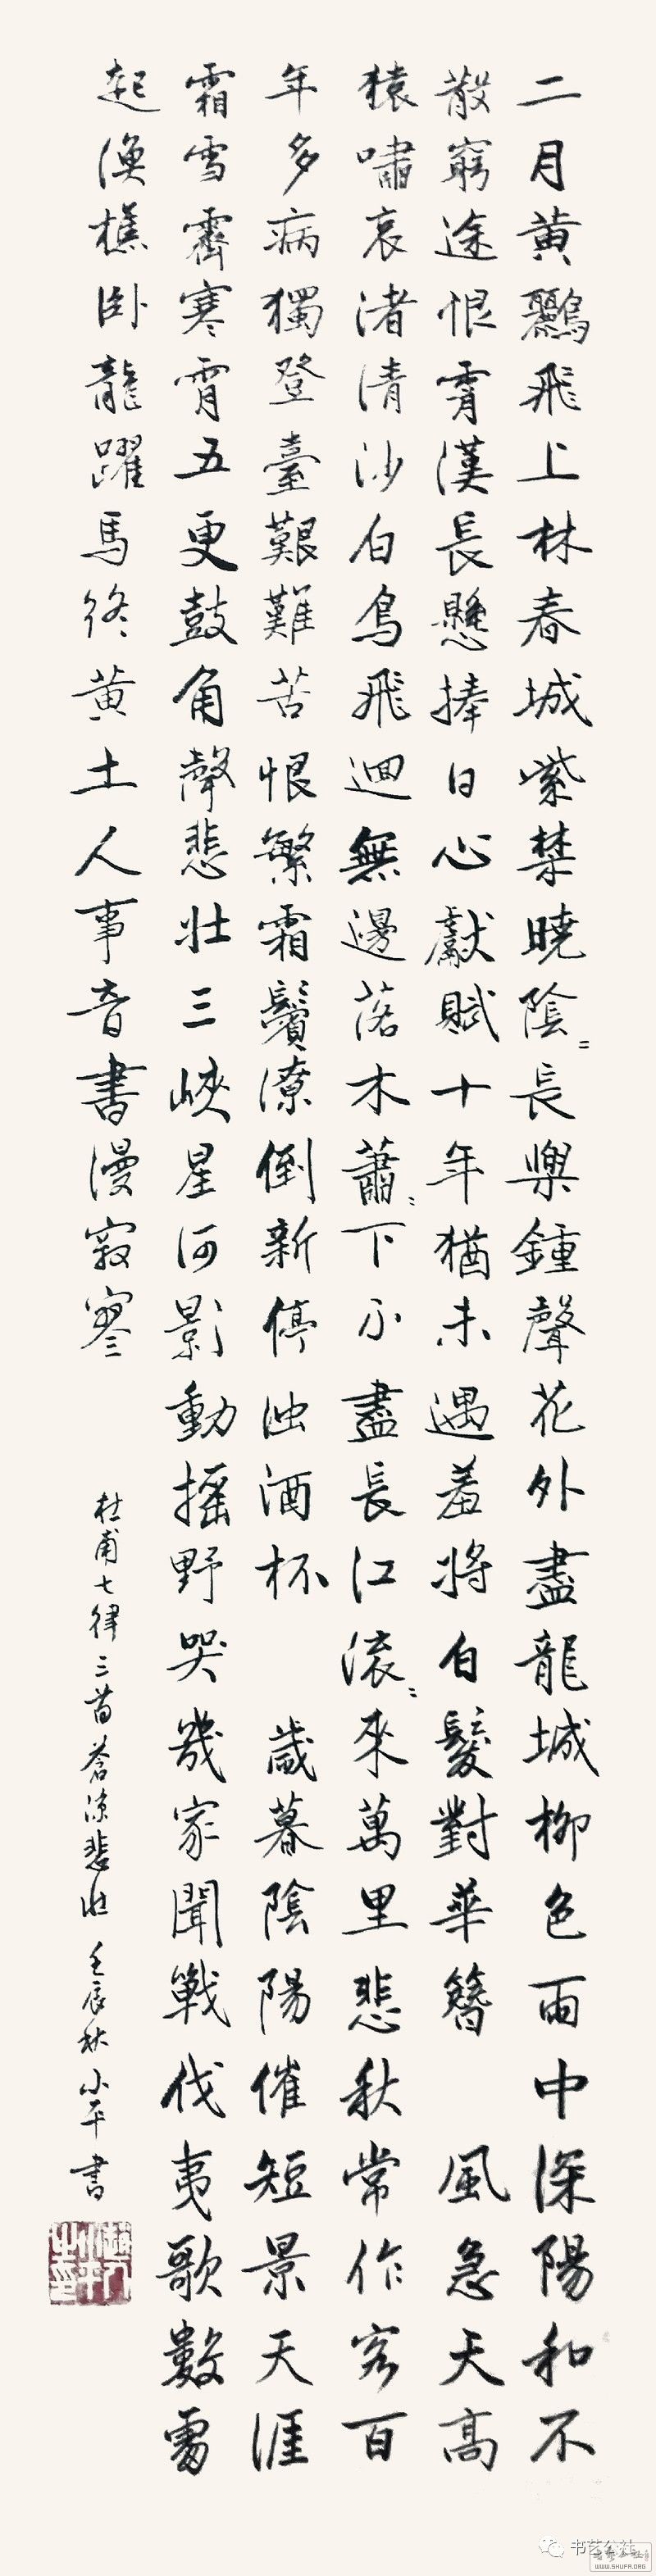 二月黄鸝飛上林春城紫禁曉陰〻長樂鍾聲花外盡龍城柳色雨中深陽和不
散窮途恨霄漢長懸捧日心獻賦十年猶未遇羞將白髮對華簪 風急天高
猿嘯哀渚清沙白鳥飛迴無邊落木蕭〻下不盡長江滾〻來萬里悲秋常作客百
年多病獨登臺艱難苦恨繁霜鬢潦倒新停浊酒杯 歲暮陰陽催短景天涯
霜雪霽寒霄五更鼓角聲悲壯三峽星河影動搖野哭幾家聞戰伐夷歌數處
起漁樵卧龍躍馬終黄土人事音書漫寂寥
杜甫七律三首蒼涼悲壯 壬辰秋小平書
书艺公社
WWW.SHUFA.ORG